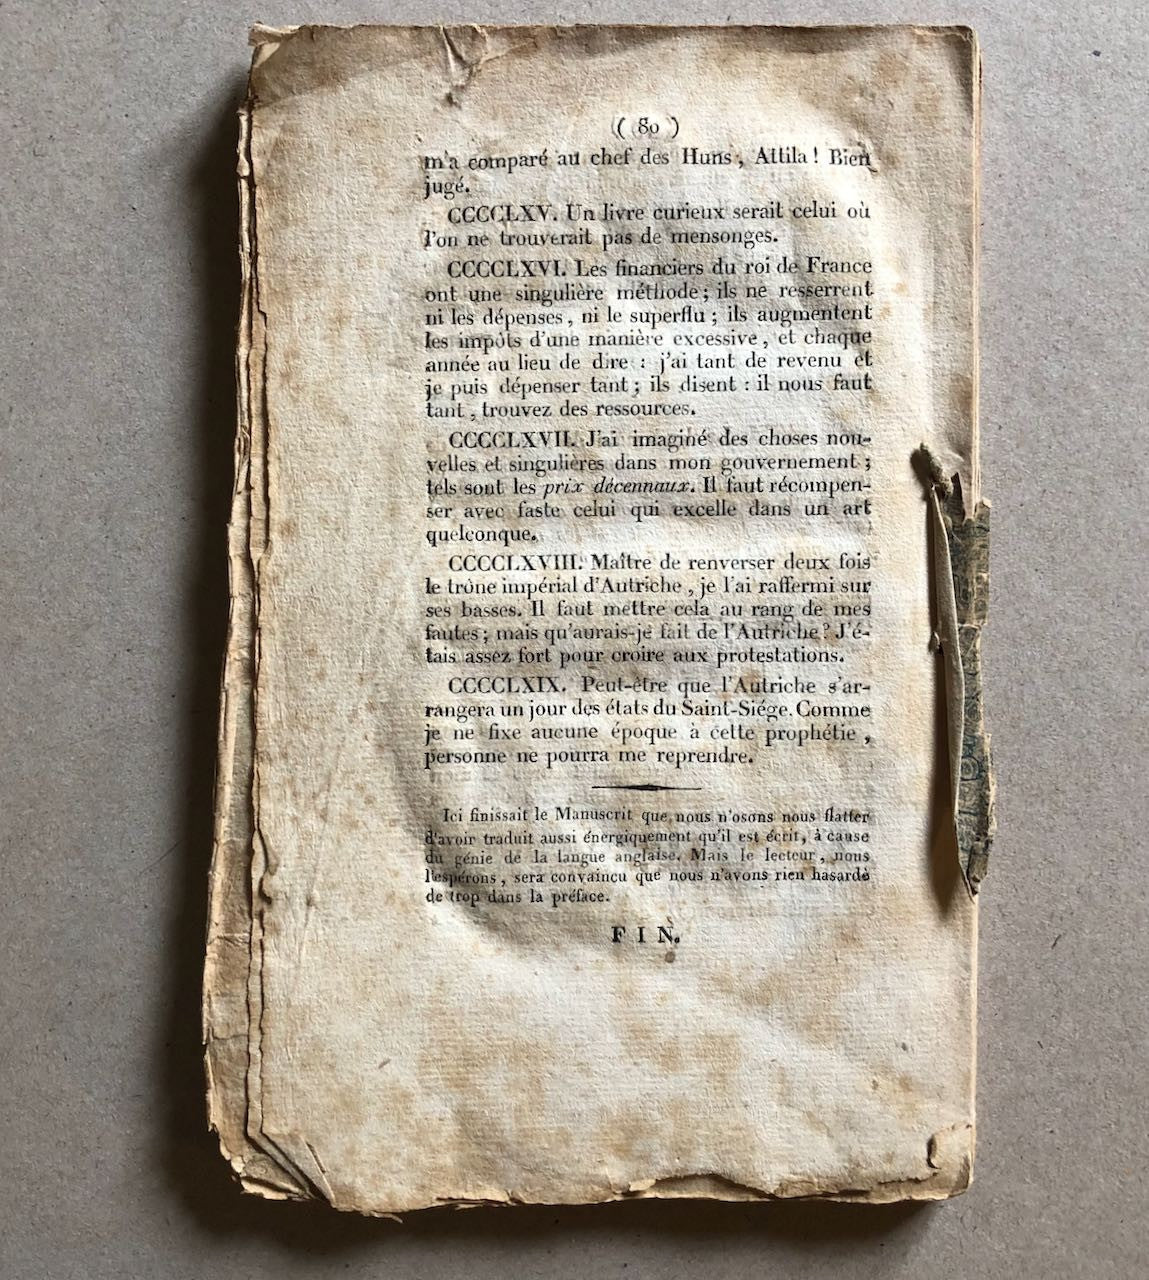 ( 80 )
m'a comparé au chef des Huns, Attila! Bien
jugé.
CCCCLXV. Un livre curieux serait celui où
l'on ne trouverait pas de mensonges.
CCCCLXVI. Les financiers du roi de France
ont une singulière méthode; ils ne resserrent
ni les dépenses, ni le superflu; ils augmentent
les impôts d'une manière excessive, et chaque
année au lieu de dire : j'ai tant de revenu et
je puis dépenser tant; ils disent : il nous faut
tant, trouvez des ressources.
CCCCLXVII. J'ai imaginé des choses nou-
velles et singulières dans mon gouvernement;
tels sont les prix décennaux. Il faut récompen-
ser avec faste celui qui excelle dans un art
quelconque.
CCCCLXVIII. Maître de renverser deux fois
le trône impérial d'Autriche, je l'ai raffermi sur
ses basses. Il faut mettre cela au rang de mes
fautes; mais qu'aurais-je fait de l'Autriche? J'é-
tais assez fort pour croire aux protestations.
CCCCLXIX. Peut-être que l'Autriche s'ar-
rangera un jour des états du Saint-Siége. Comme
je ne fixe aucune époque à cette prophétie,
personne ne pourra me reprendre.
Ici finissait le Manuscrit que nous n'osons nous flatter
d'avoir traduit aussi énergiquement qu'il est écrit, à cause
du génie de la langue anglaise. Mais le lecteur, nous
l'espérons, sera convaincu que nous n'avons rien hasardé
de trop dans la préface.
FIN.